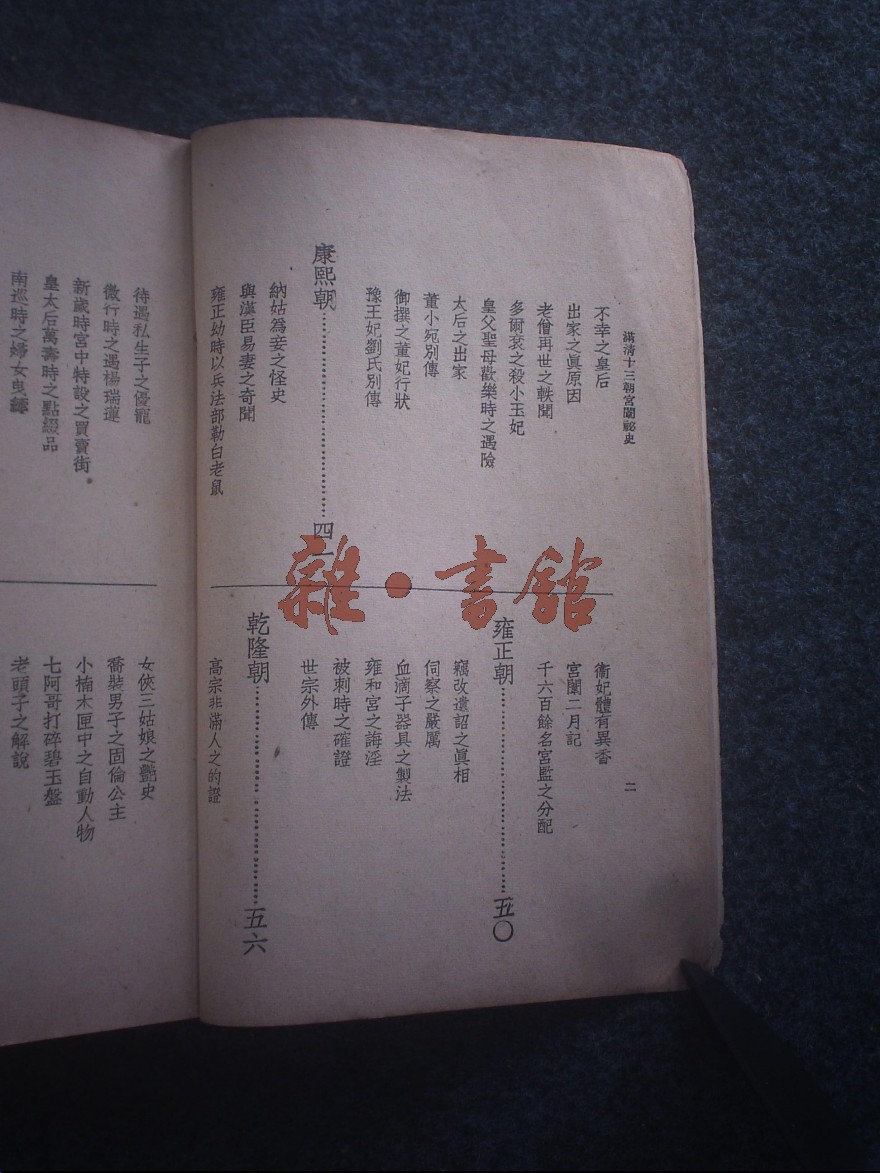 滿清十三朝宮闈祕史
二
不幸之皇后
出家之眞原因
老僧再世之軼聞
多爾袞之殺小玉妃
皇父聖母歡樂時之遇險
太后之出家
董小宛別傳
御撰之董妃行狀
豫王妃劉氏別傳
康熙朝……四一
納姑爲妾之怪史
與漢臣易妻之奇聞
雍正幼時以兵法部勒白老鼠
衞妃體有異香
宮闈二月記
千六百餘名宮監之分配
雍正朝……五〇
竊改遺詔之眞相
伺察之嚴厲
血滴子器具之製法
雍和宮之誨淫
被刺時之確證
世宗外傳
乾隆朝……五六
高宗非滿人之的證
待遇私生子之優寵
微行時之遇楊瑞蓮
新歲時宮中特設之買賣街
皇太后萬壽時之點綴品
南巡時之婦女曳縴
女俠三姑娘之艷史
喬裝男子之固倫公主
小楠木匣中之自動人物
七阿哥打碎碧玉盤
老頭子之解說
雜·書舘